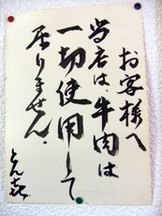 お客様へ
当店は、牛肉は
一切使用して
居りません。
とん㐂